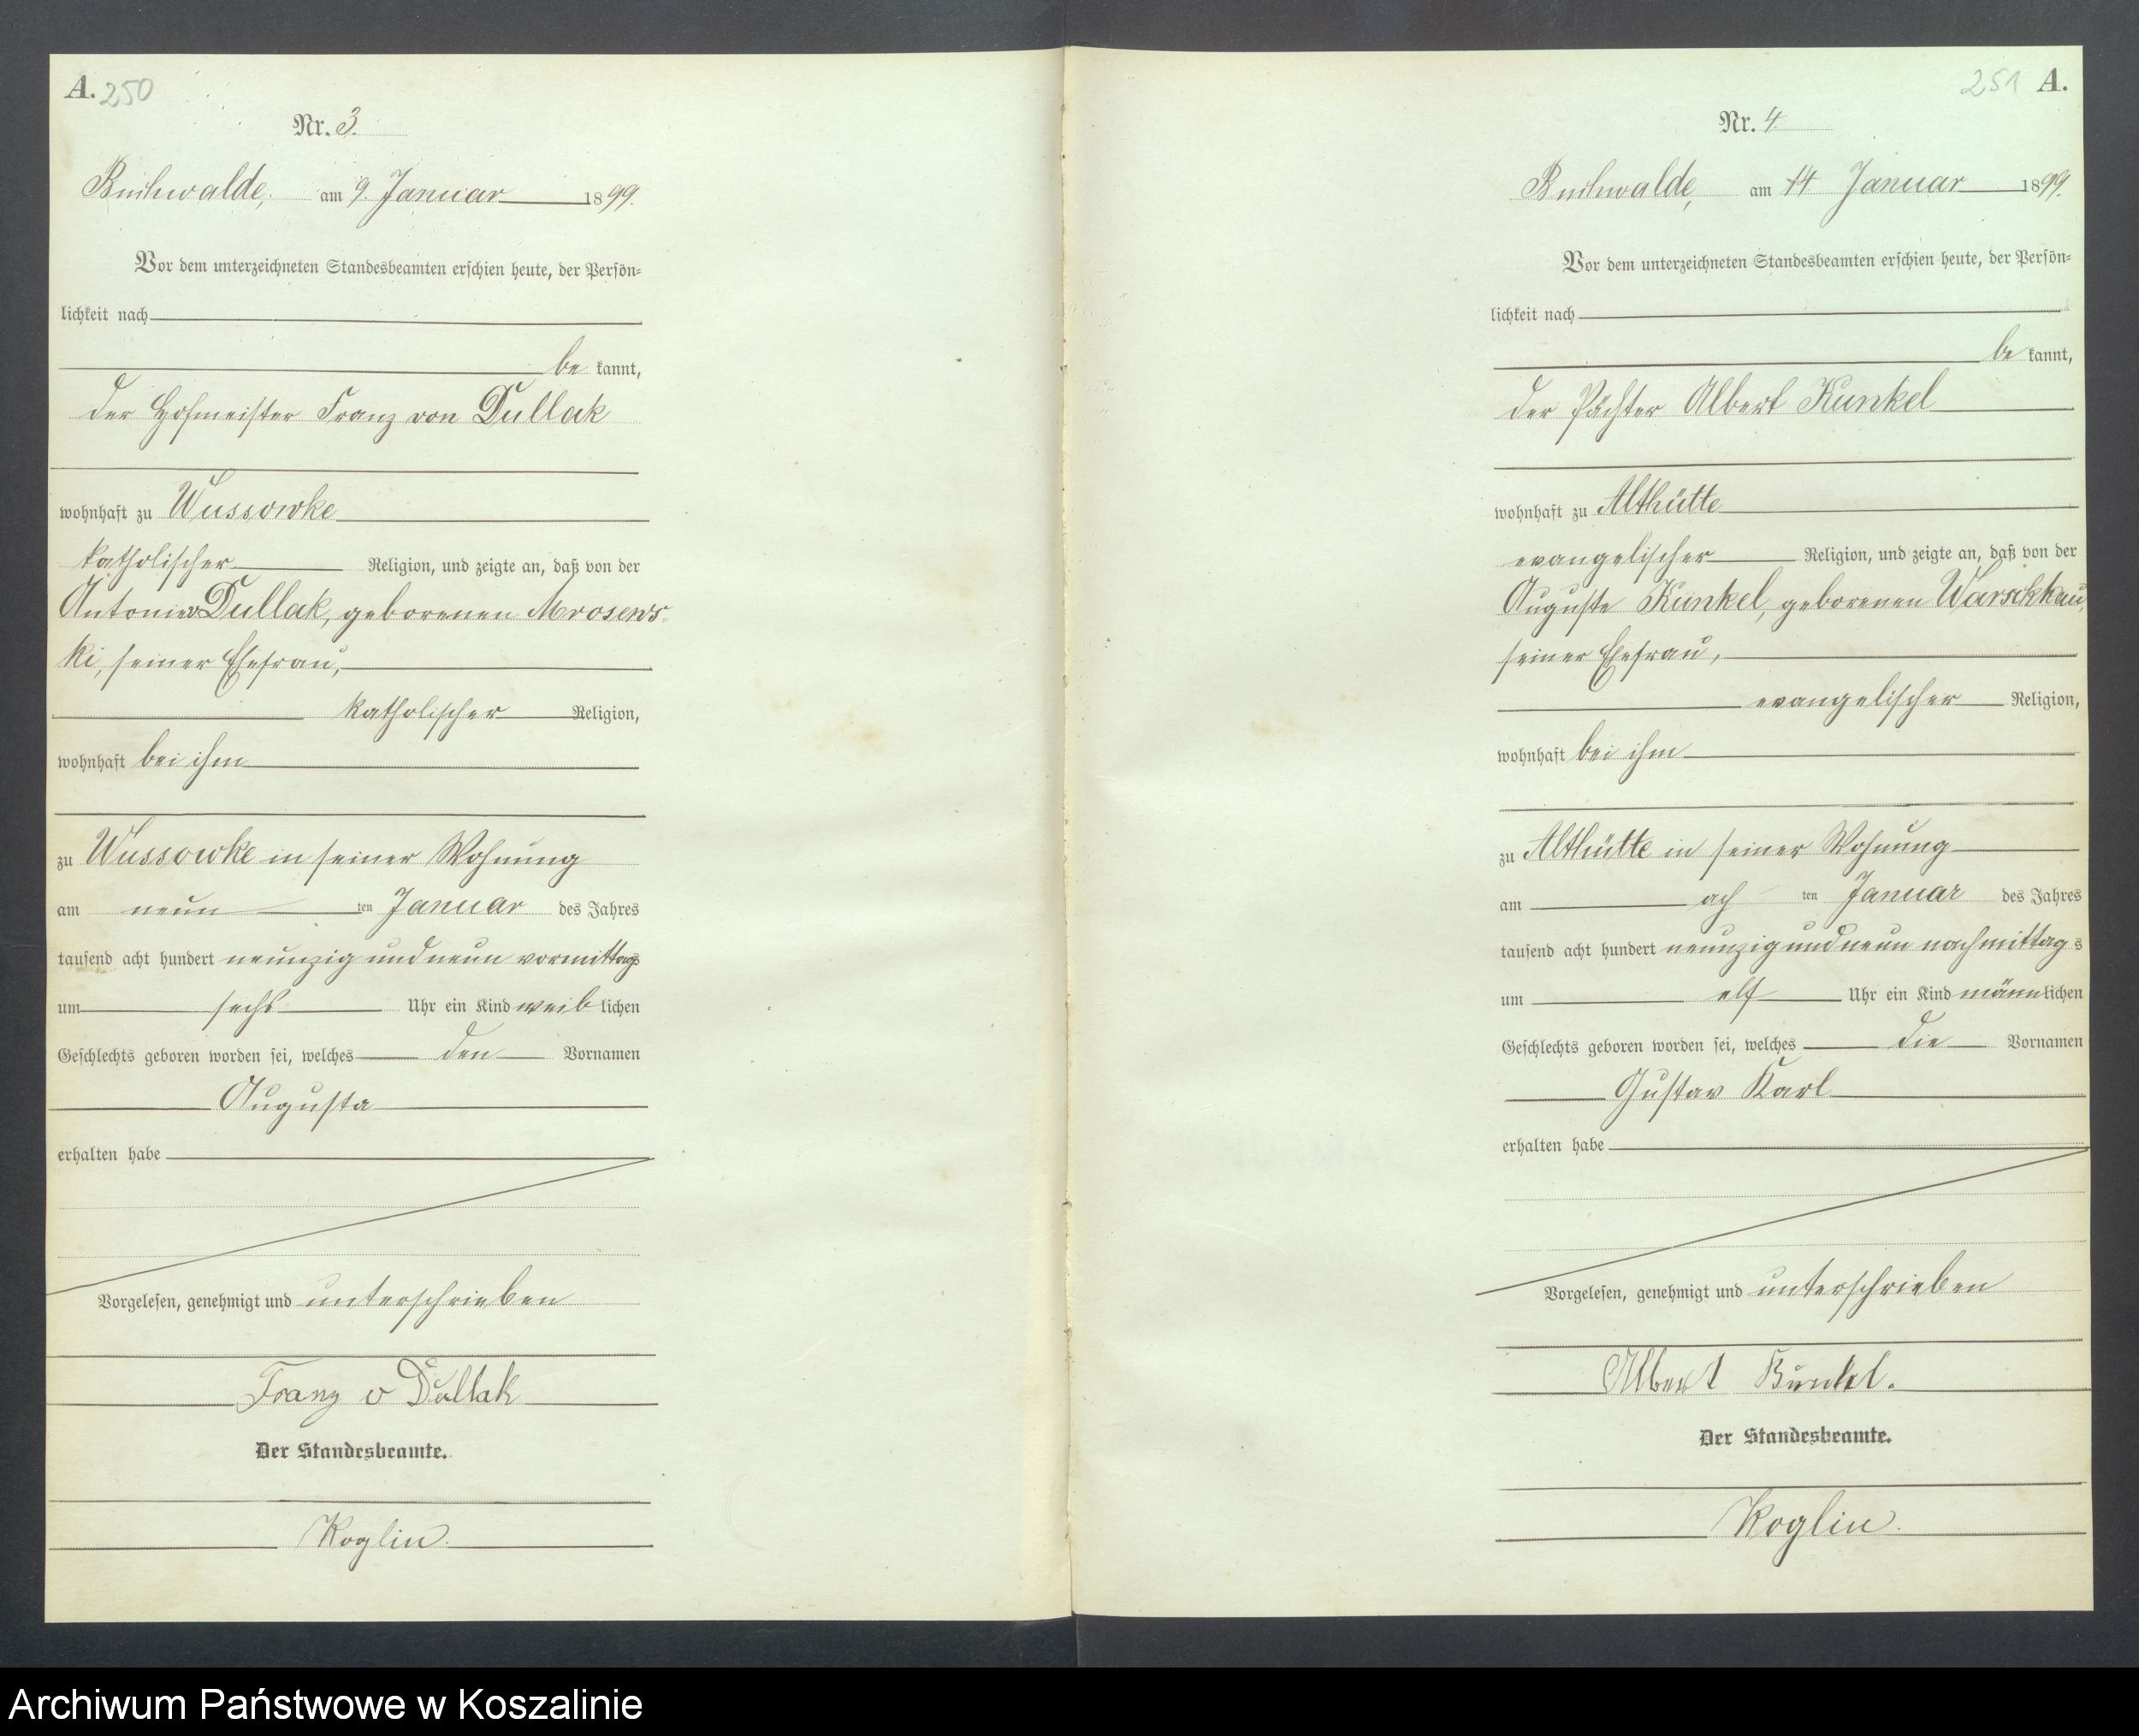 A. 250
Nr. 3.
Buchwalde, am 9. Januar 1899.
Vor dem unterzeichneten Standesbeamten erschien heute, der Persön-
lichkeit nach
be kannt,
der Hofmeister Franz von Dullak
wohnhaft zu Wussowke
katholischer Religion, und zeigte an, daß von der
Antonie v. Dullak, geborenen Mrosews-
ki, seiner Ehefrau,
katholischer Religion,
wohnhaft bei ihm
zu Wussowke in seiner Wohnung
am neun ten Januar des Jahres
tausend acht hundert neunzig und neun vormittags
um sechs Uhr ein Kind weib lichen
Geschlechts geboren worden sei, welches den Vornamen
Augusta
erhalten habe
Vorgelesen, genehmigt und unterschrieben
Franz v Dullak
Der Standesbeamte.
Koglin.
251 A.
Nr. 4
Buchwalde, am 14 Januar 1899.
Vor dem unterzeichneten Standesbeamten erschien heute, der Persön-
lichkeit nach
be kannt,
der Pächter Albert Kunkel
wohnhaft zu Althütte
evangelischer Religion, und zeigte an, daß von der
Auguste Kunkel, geborenen
seiner Ehefrau,
evangelischer Religion,
wohnhaft bei ihm
zu Althütte in seiner Wohnung
am ach ten Januar des Jahres
tausend acht hundert neunzig und neun nachmittag s
um elf Uhr ein Kind männ lichen
Geschlechts geboren worden sei, welches die Vornamen
Gustav Karl
erhalten habe
Vorgelesen, genehmigt und unterschrieben
Albert Kunkel.
Der Standesbeamte.
Koglin.
Archiwum Państwowe w Koszalinie